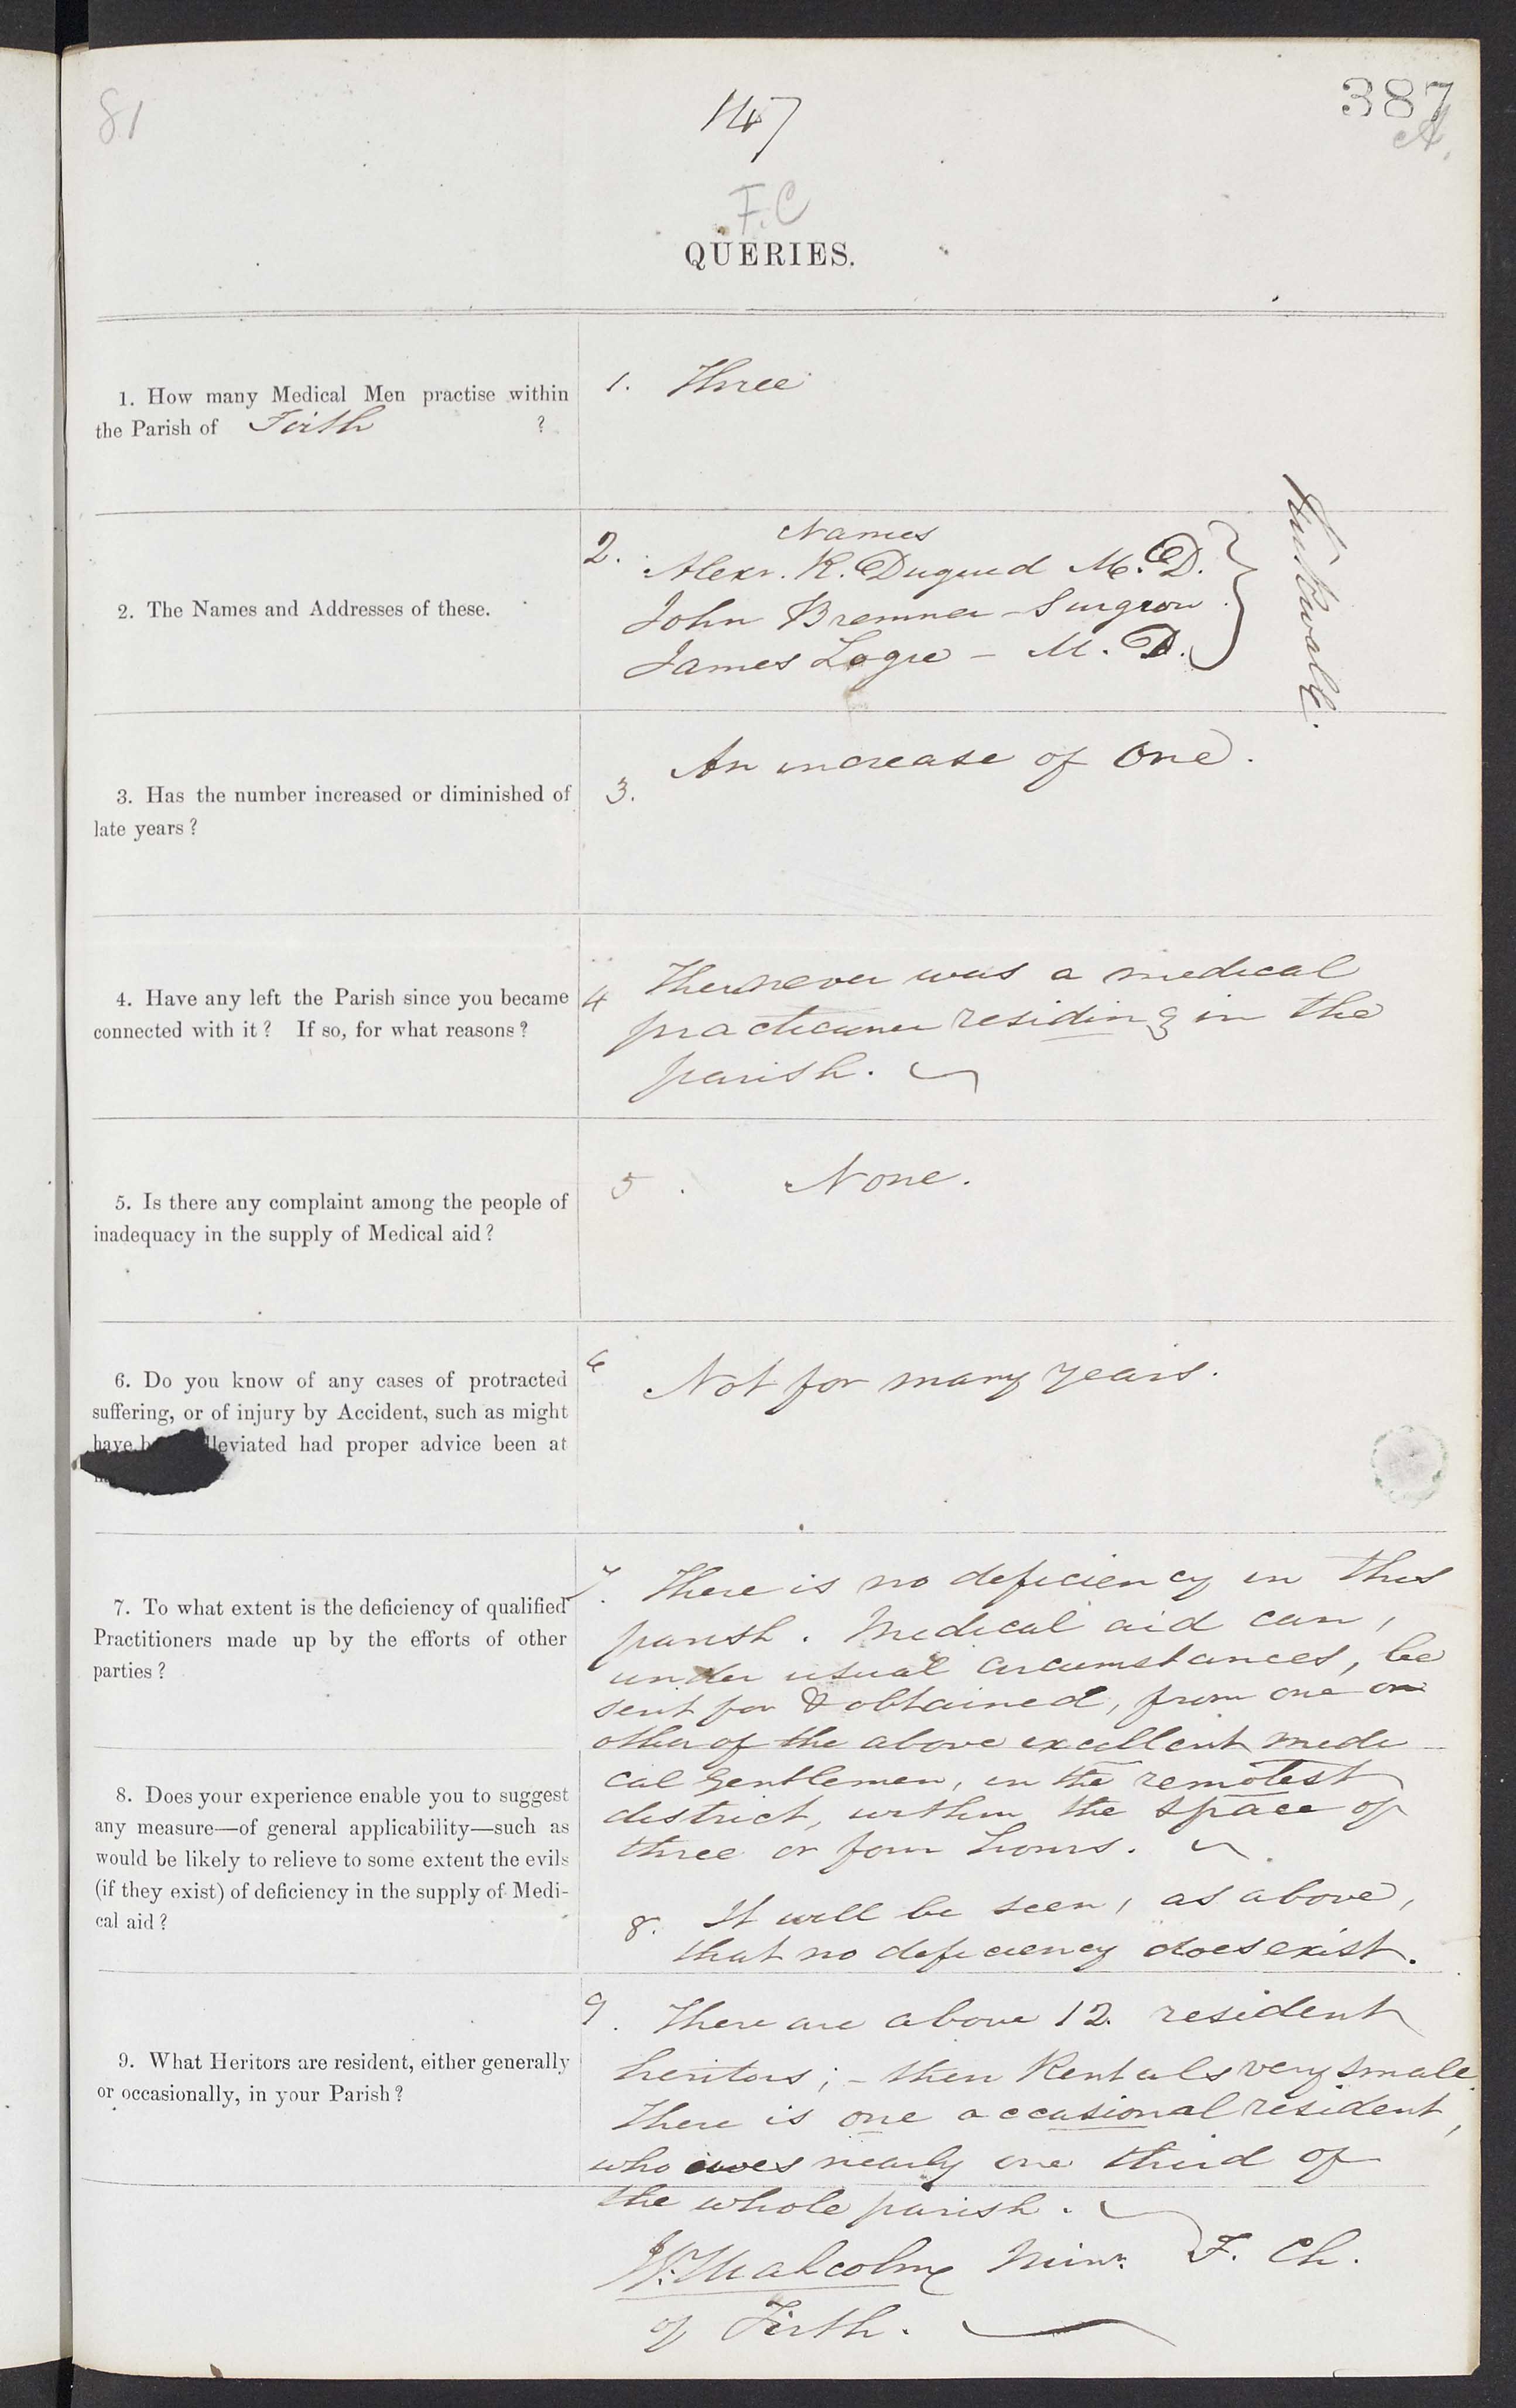 81
147
387
A.
F.C
QUERIES.
1. How many Medical Men practise within
the Parish of Firth ?
1. Three
2. The Names and Addresses of these.
2. Names
Alexr. R. Duguid M.D.
John Bremner - Surgeon
James Logie - M.D.
Kirkwall.
3. Has the number increased or diminished of
late years?
3. An increase of One.
4. Have any left the Parish since you became
connected with it? If so, for what reasons?
4 There never was a medical
practicioner residing in the
parish.
5. Is there any complaint among the people of
inadequacy in the supply of Medical aid?
5. None.
6. Do you know of any cases of protracted
suffering, or of injury by Accident, such as might
have b lleviated had proper advice been at
6 Not for many years.
7. To what extent is the deficiency of qualified
Practitioners made up by the efforts of other
parties?
7. There is no deficiency in this
parish. Medical aid can,
under usual circumstances, be
sent for & obtained, from one or
other of the above excellent medi-
cal Gentlemen, in the remotest
district, within the space of
three or four hours.
8. Does your experience enable you to suggest
any measure—of general applicability—such as
would be likely to relieve to some extent the evils
(if they exist) of deficiency in the supply of Medi-
cal aid?
8. It will be seen, as above,
that no deficiency does exist.
9. What Heritors are resident, either generally
or occasionally, in your Parish?
9. There are above 12 resident
heritors; - their Rentals very small.
There is one occasional resident,
who owes nearly one third of
the whole parish.
W. Malcolm Minr. F. Ch.
of Firth.